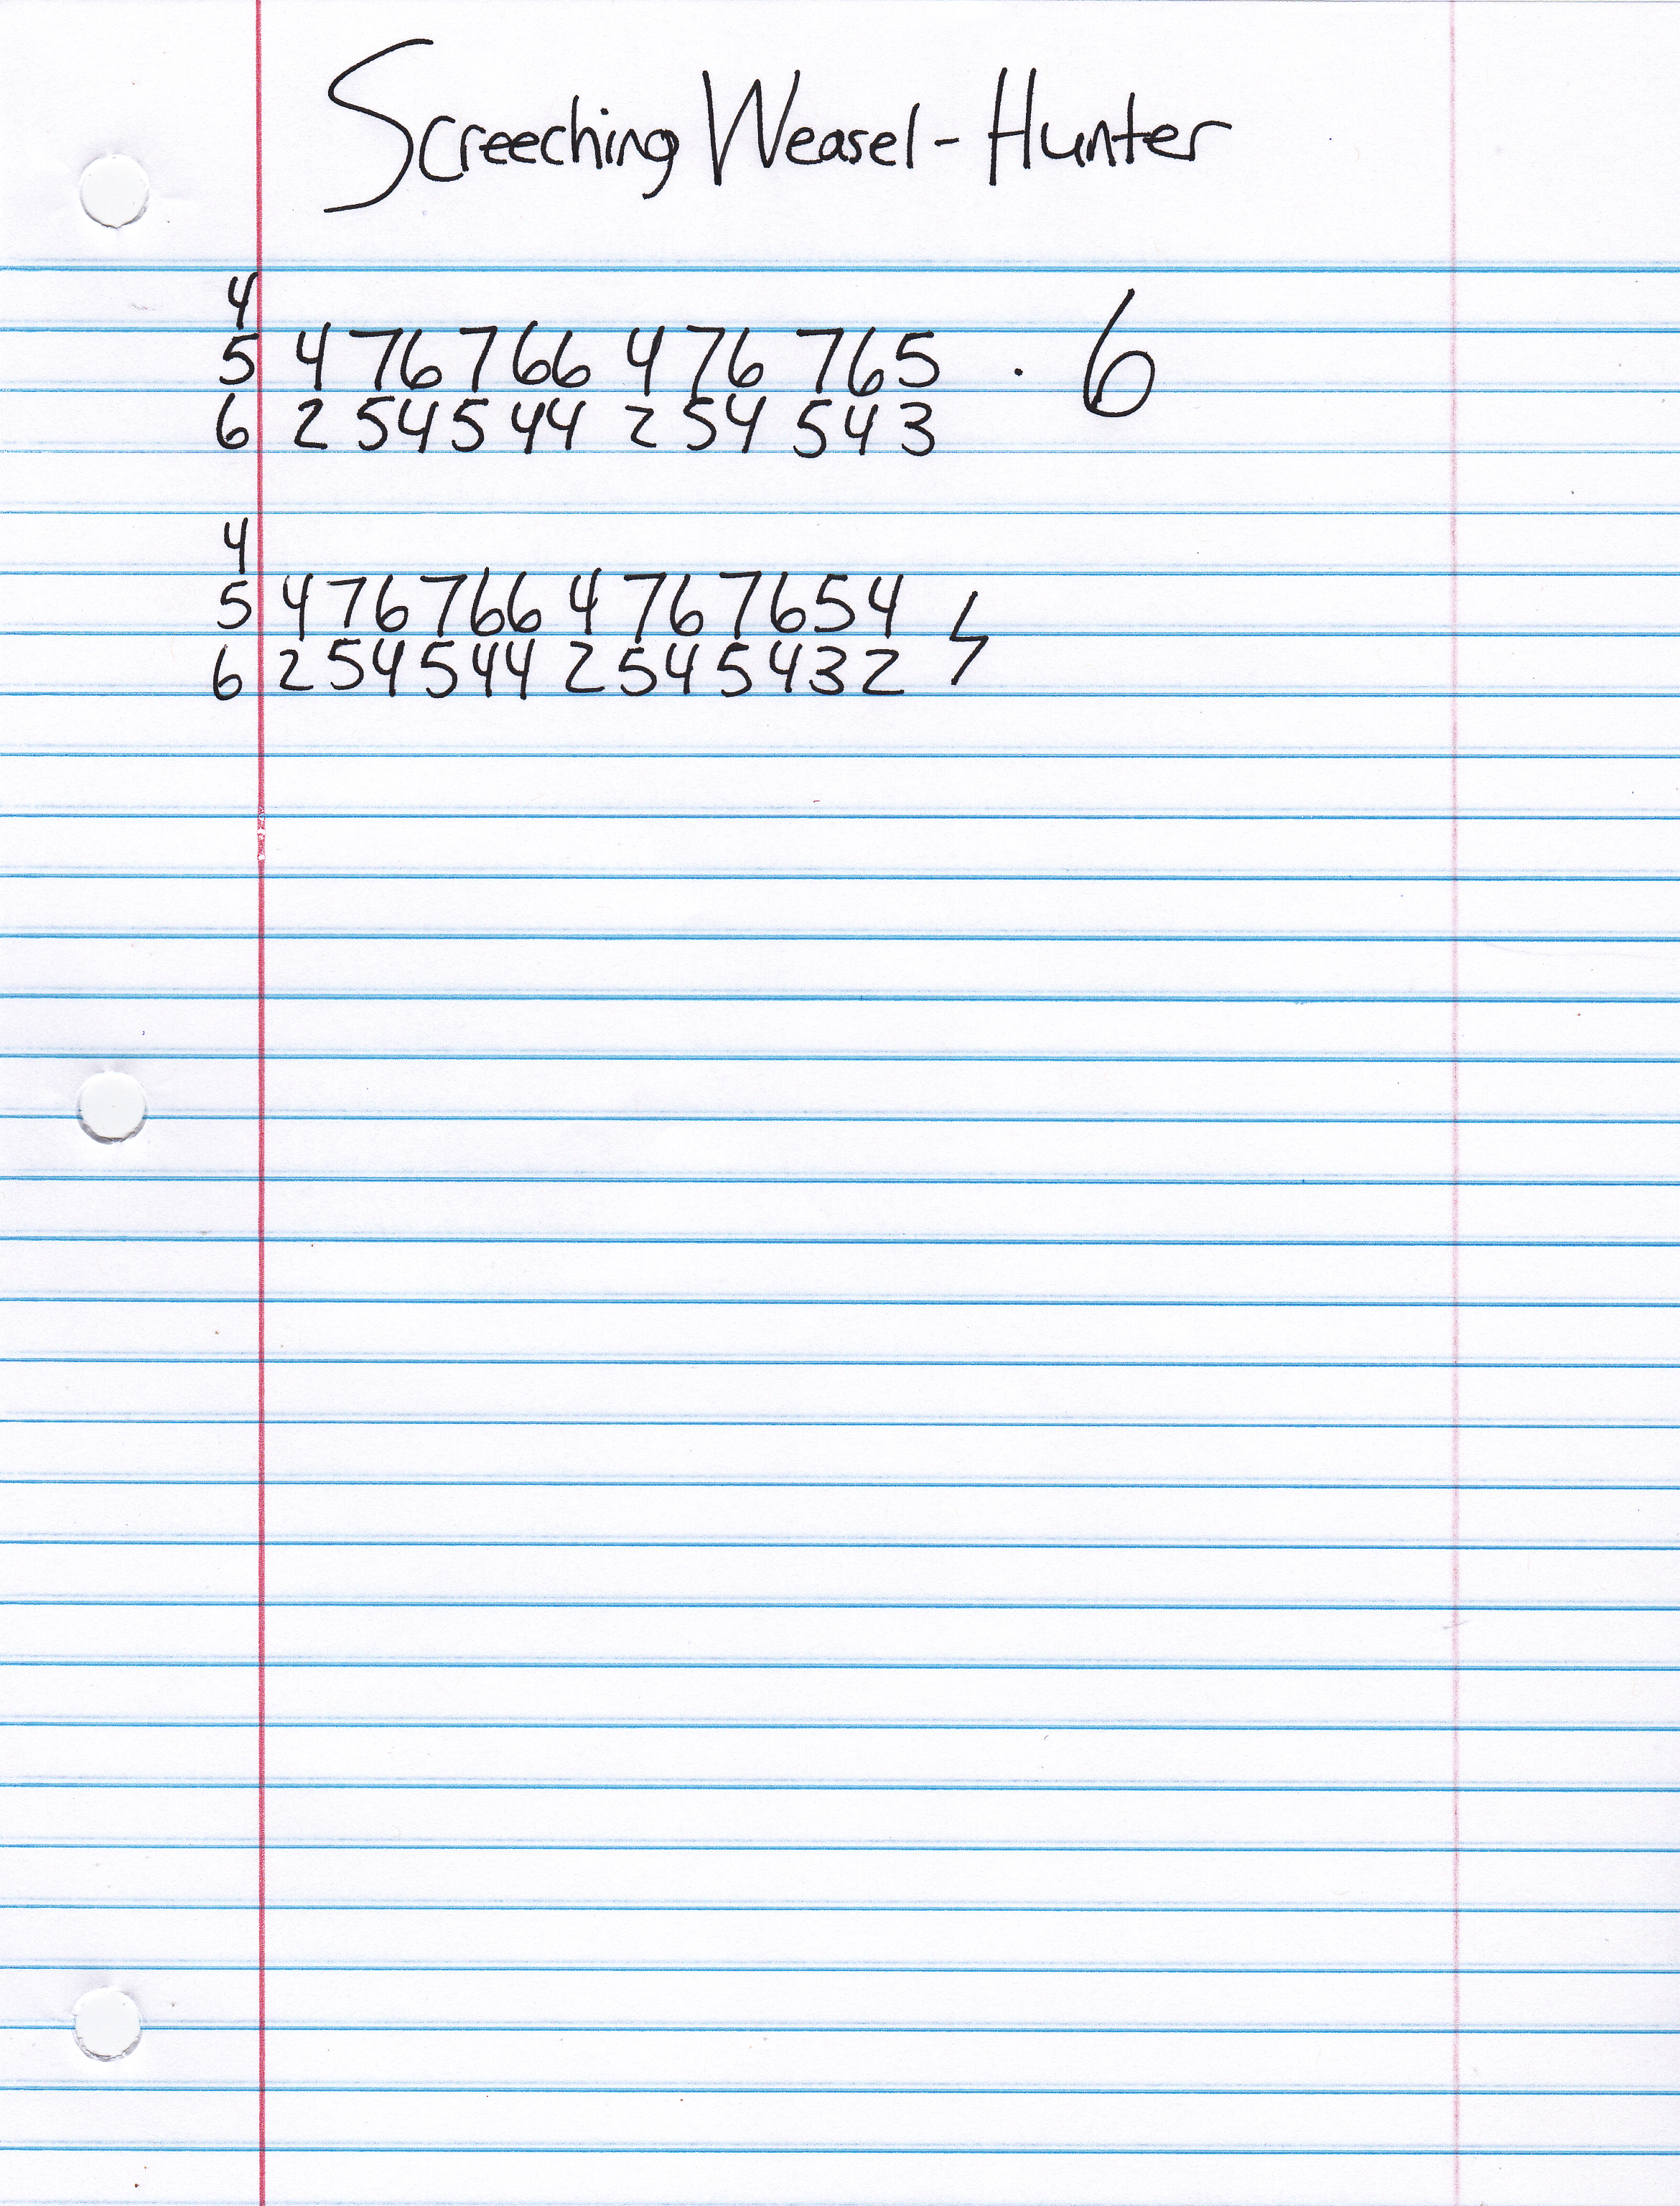 Screeching Weasel - Hunter
4
5 4 76 7 66 4 76 765 . 6
6 2 54 5 44 2 54 543
4
5 4 76 766 4 76 7654
6 2 54 544 2 54 5432